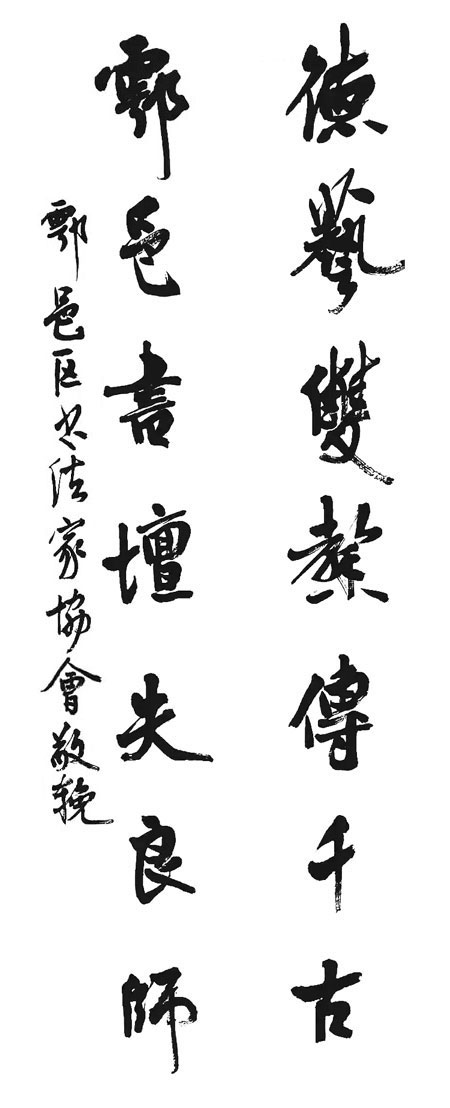 德藝雙馨傳千古
鄠邑書壇失良師
鄠邑区书法家協會敬輓